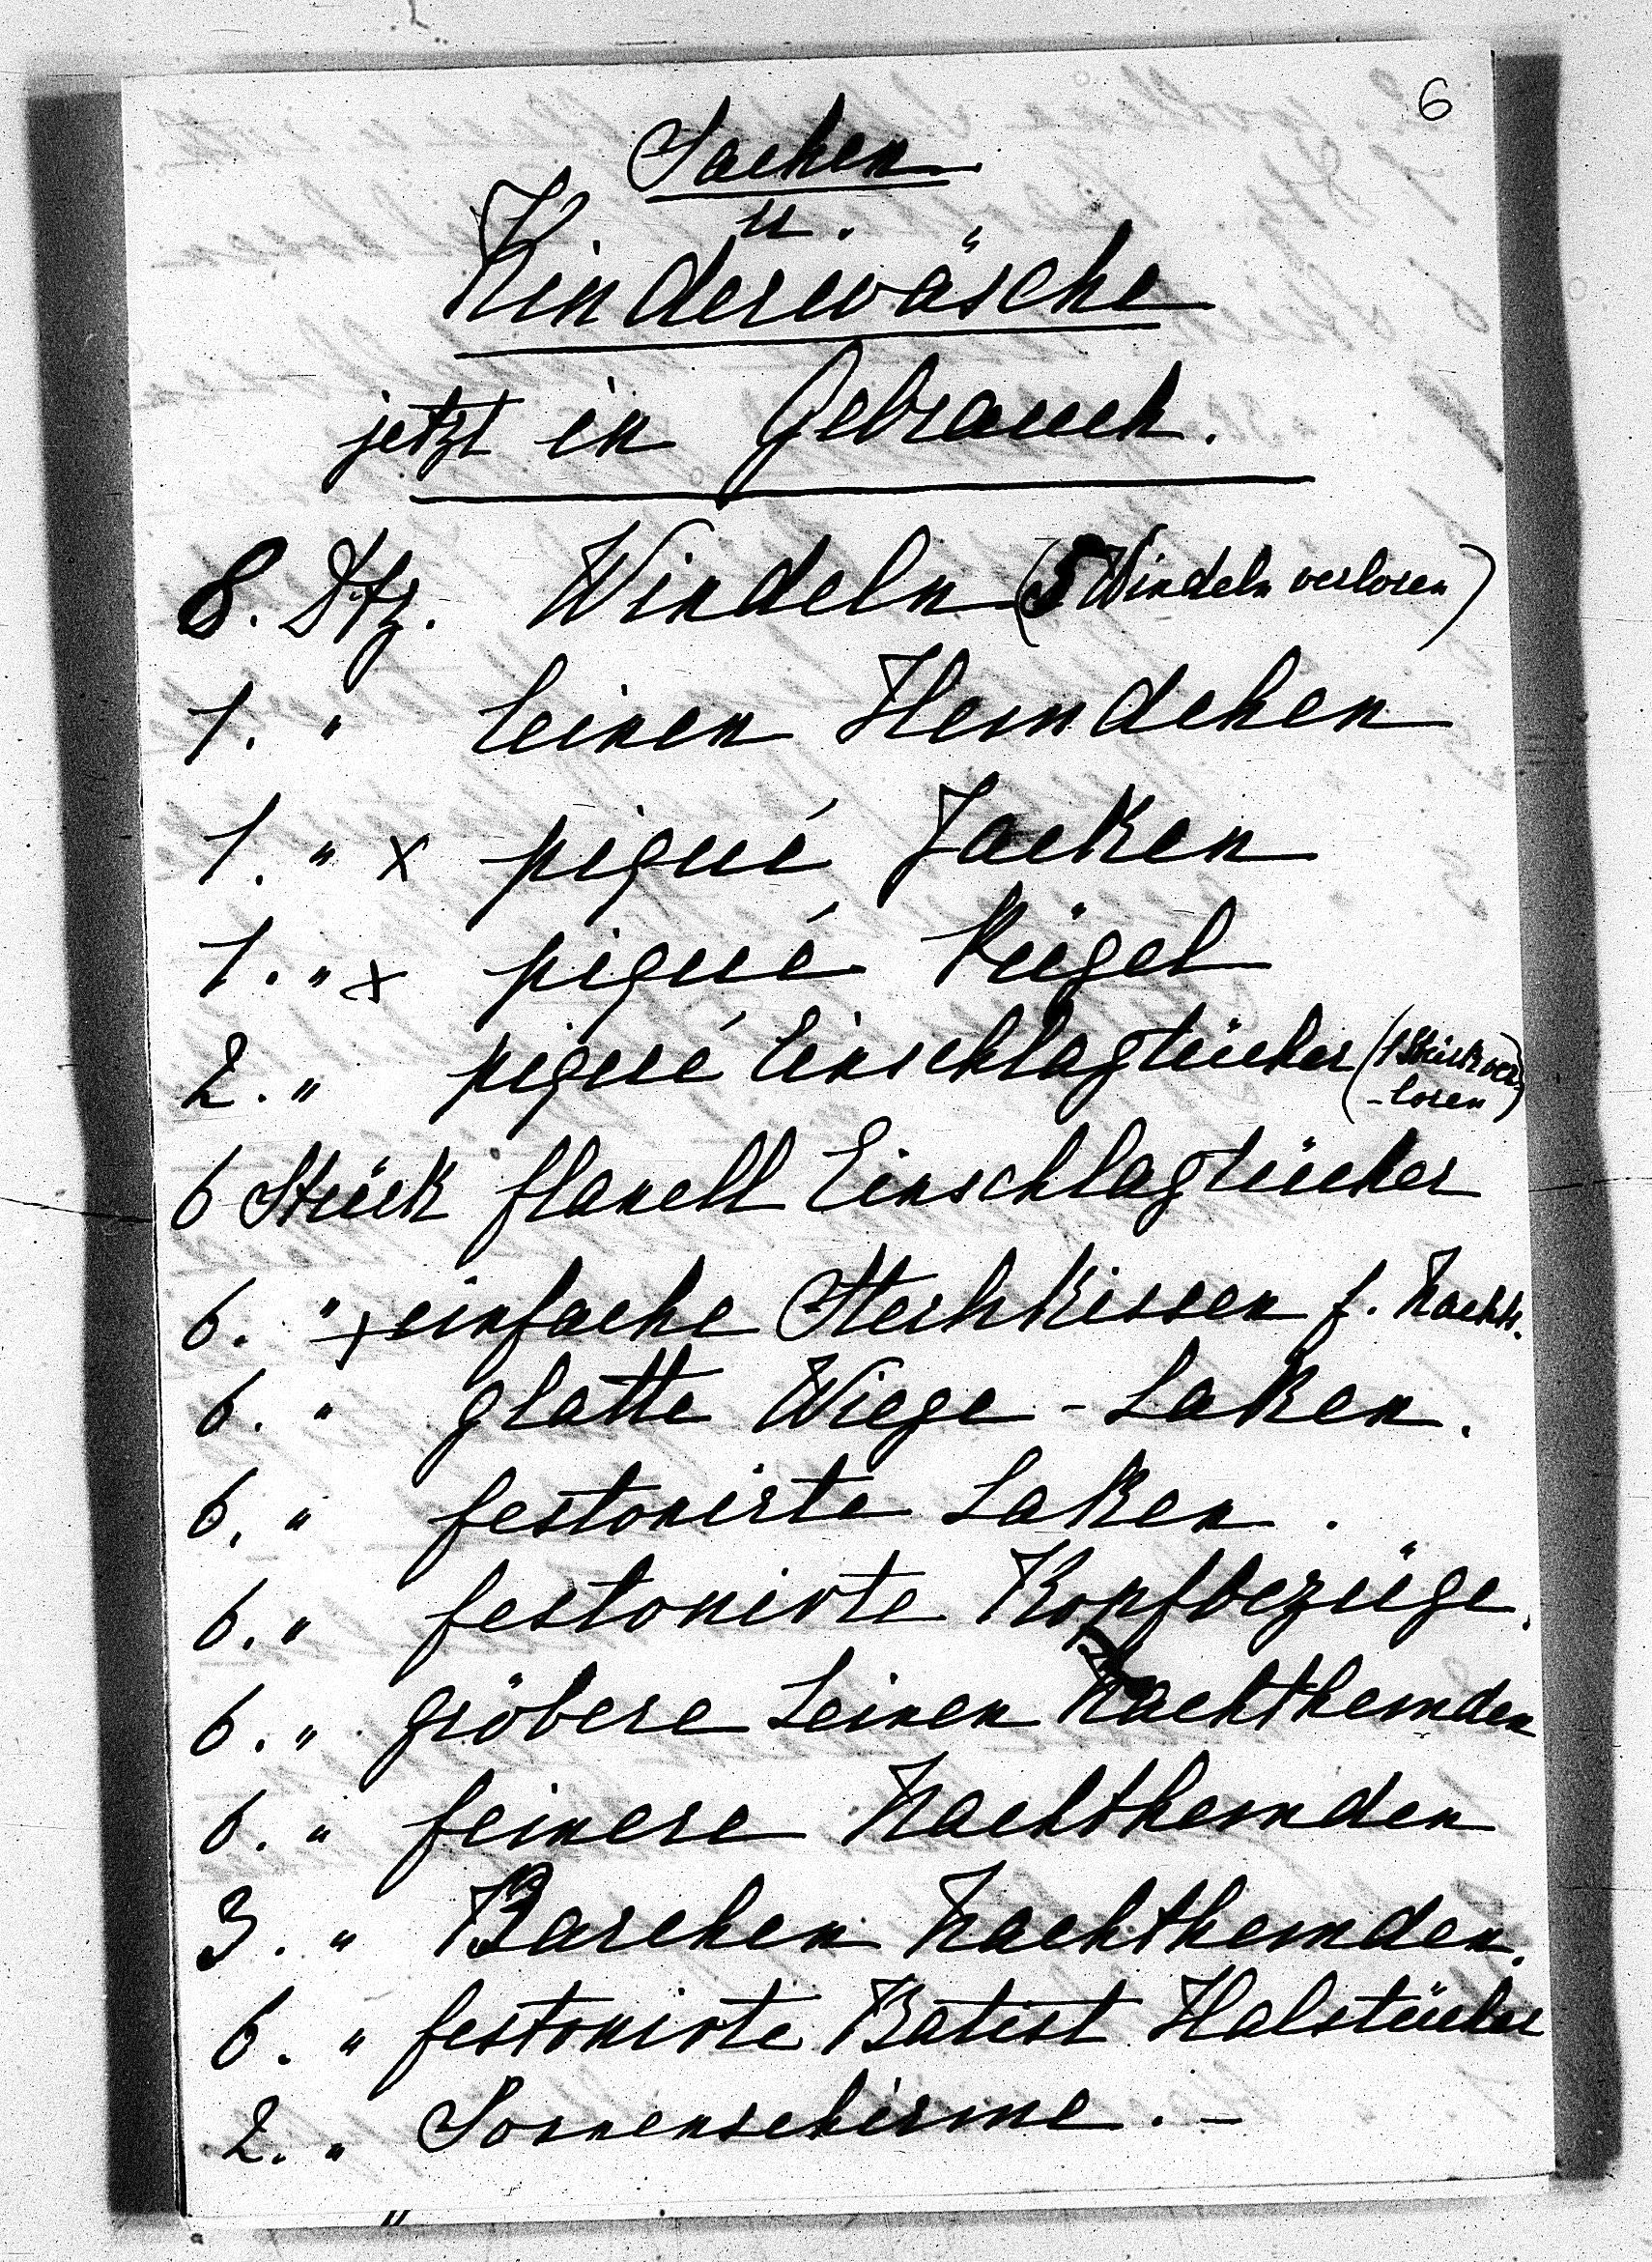 6
Sachen
u.
Kinderwäsche
jetzt in Gebrauch.
8. Dtz. Windeln (5 Windeln verloren)
1. " leinen Hemdchen
1. " x piqué Jacken
1. " x piqué Riegel
2. " piqué Einschlagtücher (1 Stück ver-
-loren)
6 Stück flanell Einschlagtücher
6. " x einfache Steckkissen f. Nachts.
6. " glatte Wiege-Laken.
6. " festonirte Laken.
6. " festonirte Kopfbezüge.
6. " gröbere Leinen Nachthemden
6. " feinere Nachthemden
3. " Barchen Nachthemden.
6. " festonirte Batist Halstücher
2. " Sonnenschirme. –
"